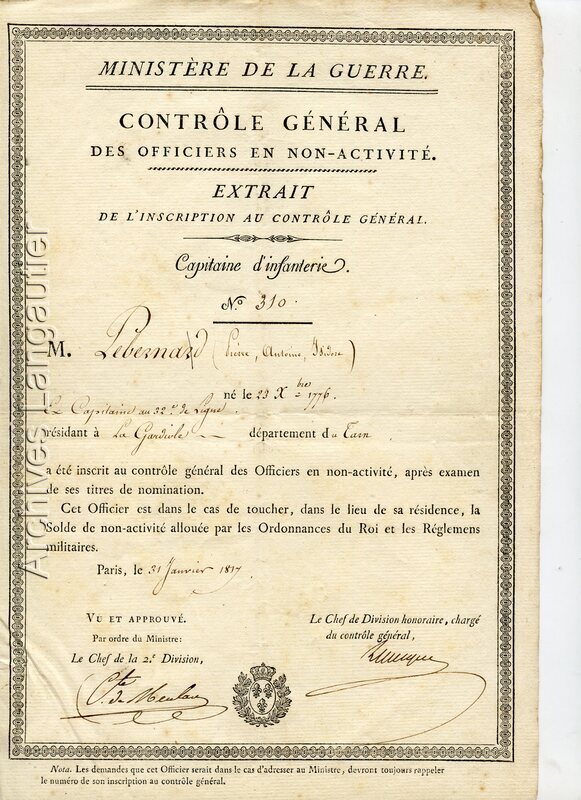 MINISTÈRE DE LA GUERRE.
CONTRÔLE GÉNÉRAL
DES OFFICIERS EN NON-ACTIVITÉ.
EXTRAIT
DE L'INSCRIPTION AU CONTRÔLE GÉNÉRAL.
Capitaine d'infanterie.
N.º 310.
M. Pebernard (Pierre, Antoine, Isidore)
né le 23 X.bre 1776.
Capitaine au 32.e de Ligne.
résidant à La Gardiole département du Tarn
a été inscrit au contrôle général des Officiers en non-activité, après examen
de ses titres de nomination.
Cet Officier est dans le cas de toucher, dans le lieu de sa résidence, la
Solde de non-activité allouée par les Ordonnances du Roi et les Réglemens
militaires.
Paris, le 31 Janvier 1817
VU ET APPROUVÉ.
Par ordre du Ministre:
Le Chef de la 2.e Division,
C.te de Meulan
Le Chef de Division honoraire, chargé
du contrôle général,
Nota. Les demandes que cet Officier serait dans le cas d'adresser au Ministre, devront toujours rappeler
le numéro de son inscription au contrôle général.
Archives Langautier